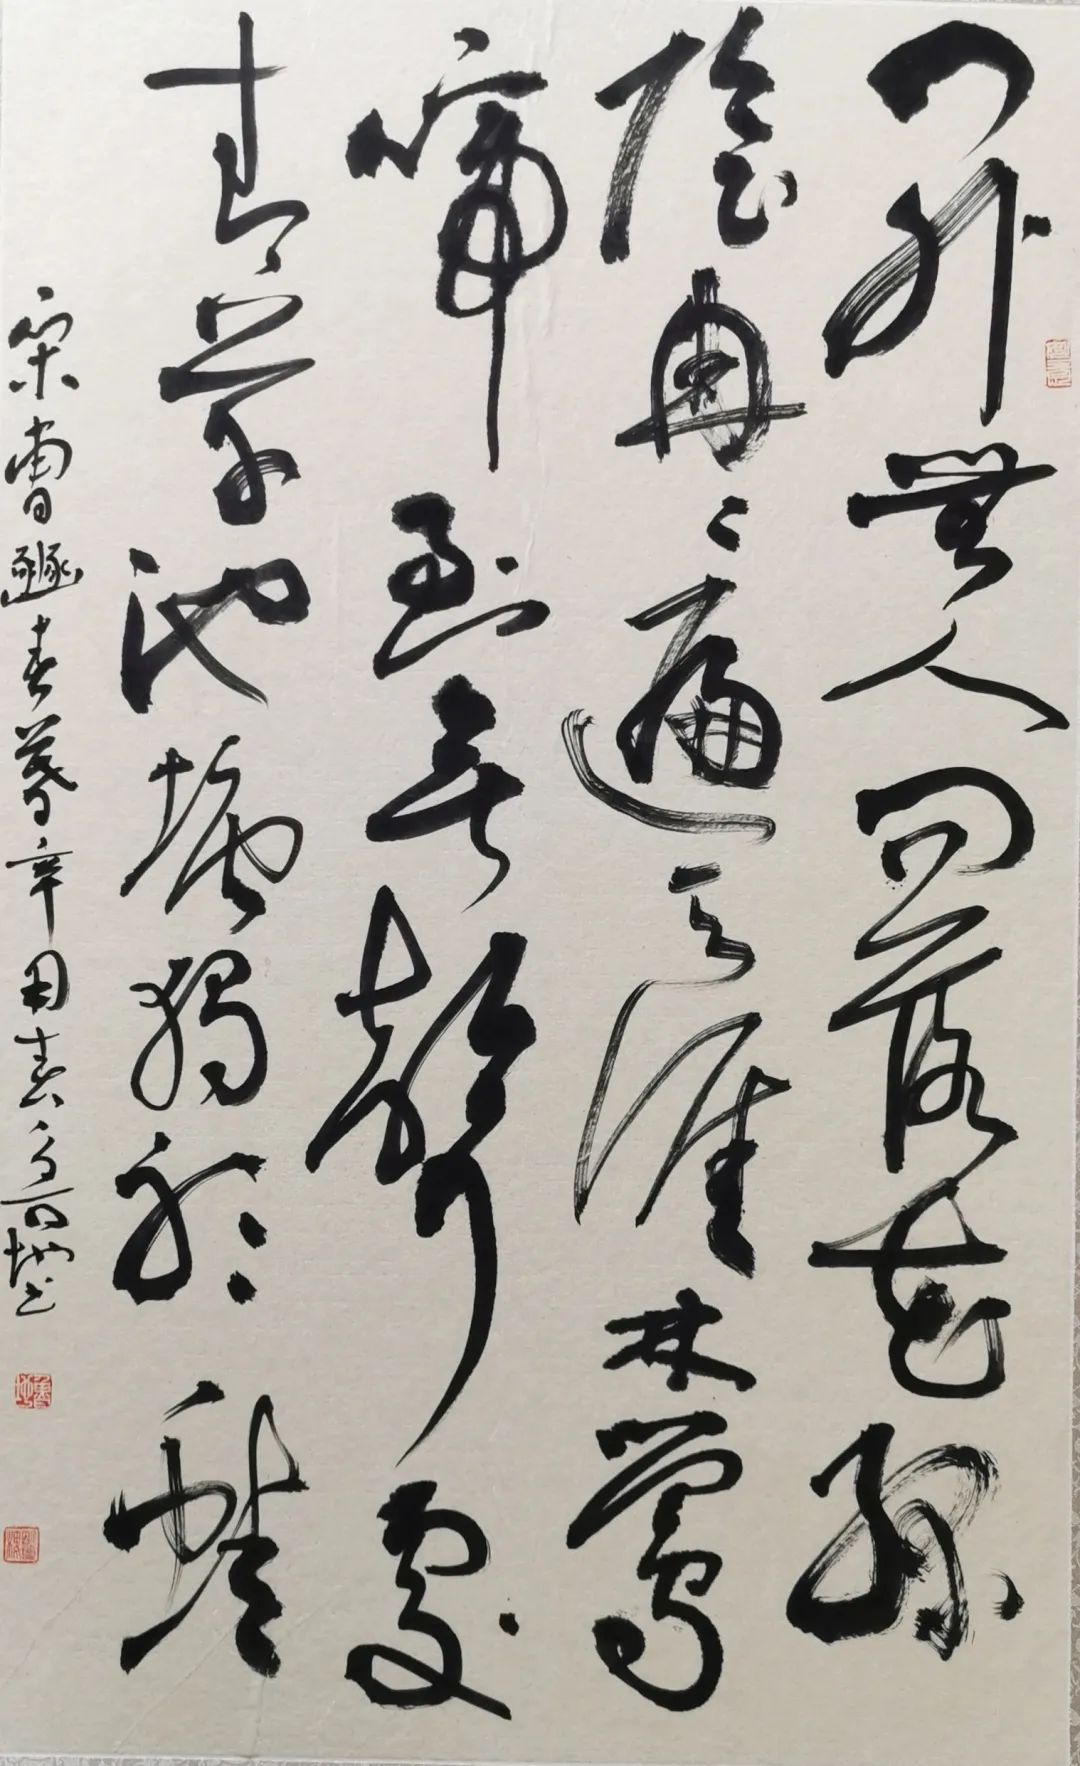 門外無人問落花綠
陰冉冉遍天涯林鶯
啼到無聲處
青草池塘獨聽蛙
宋曹豳春暮辛丑春